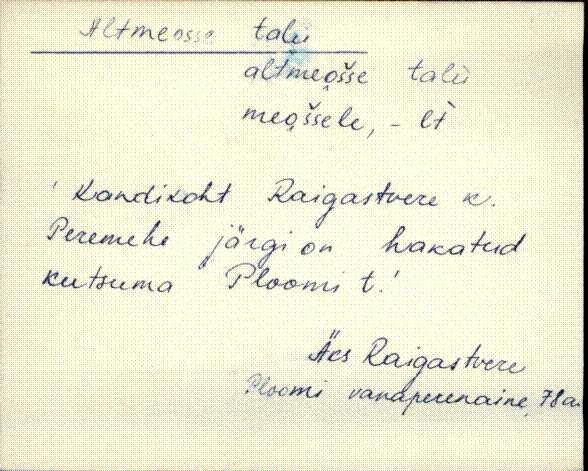 Altmeosse talu
altmeo̭šše talù
meo̭ššele, - lt̀
' Kandikoht Raigastvere k.
Peremehe järgi on hakatud
kutsuma Ploomi t.'
Äks Raigastvere
Ploomi vanaperenaine, 78a.